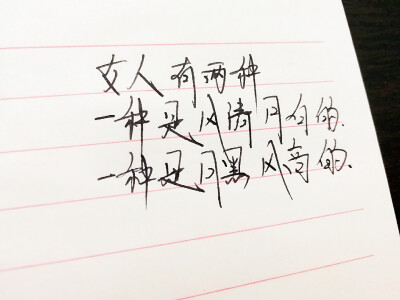 女人有两种
一种是风清月白的.
一种是月黑风高的.